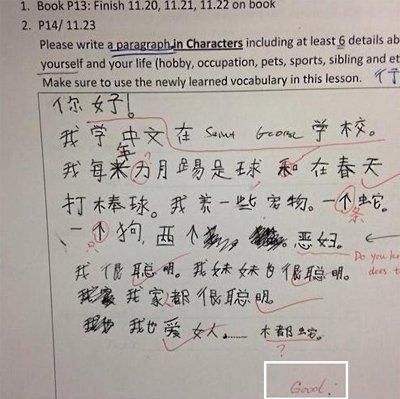 1. Book P13: Finish 11.20, 11.21, 11.22 on book
2. P14/ 11.23
Please write a paragraph in Characters including at least 6 details ab
yourself and your life (hobby, occupation, pets, sports, sibling and et
Make sure to use the newly learned vocabulary in this lesson.
你好!
我学中文在 Saint George 学校。
我每年 月踢足球和在春天
打棒球。我养一些宠物。一个蛇
条
一个狗,两个 。恶妇。
Do you kn
does t
我很聪明。我妹妹也很聪明。
我家都很聪明。
我也爱女人…… 木都蛇。
?
Good: